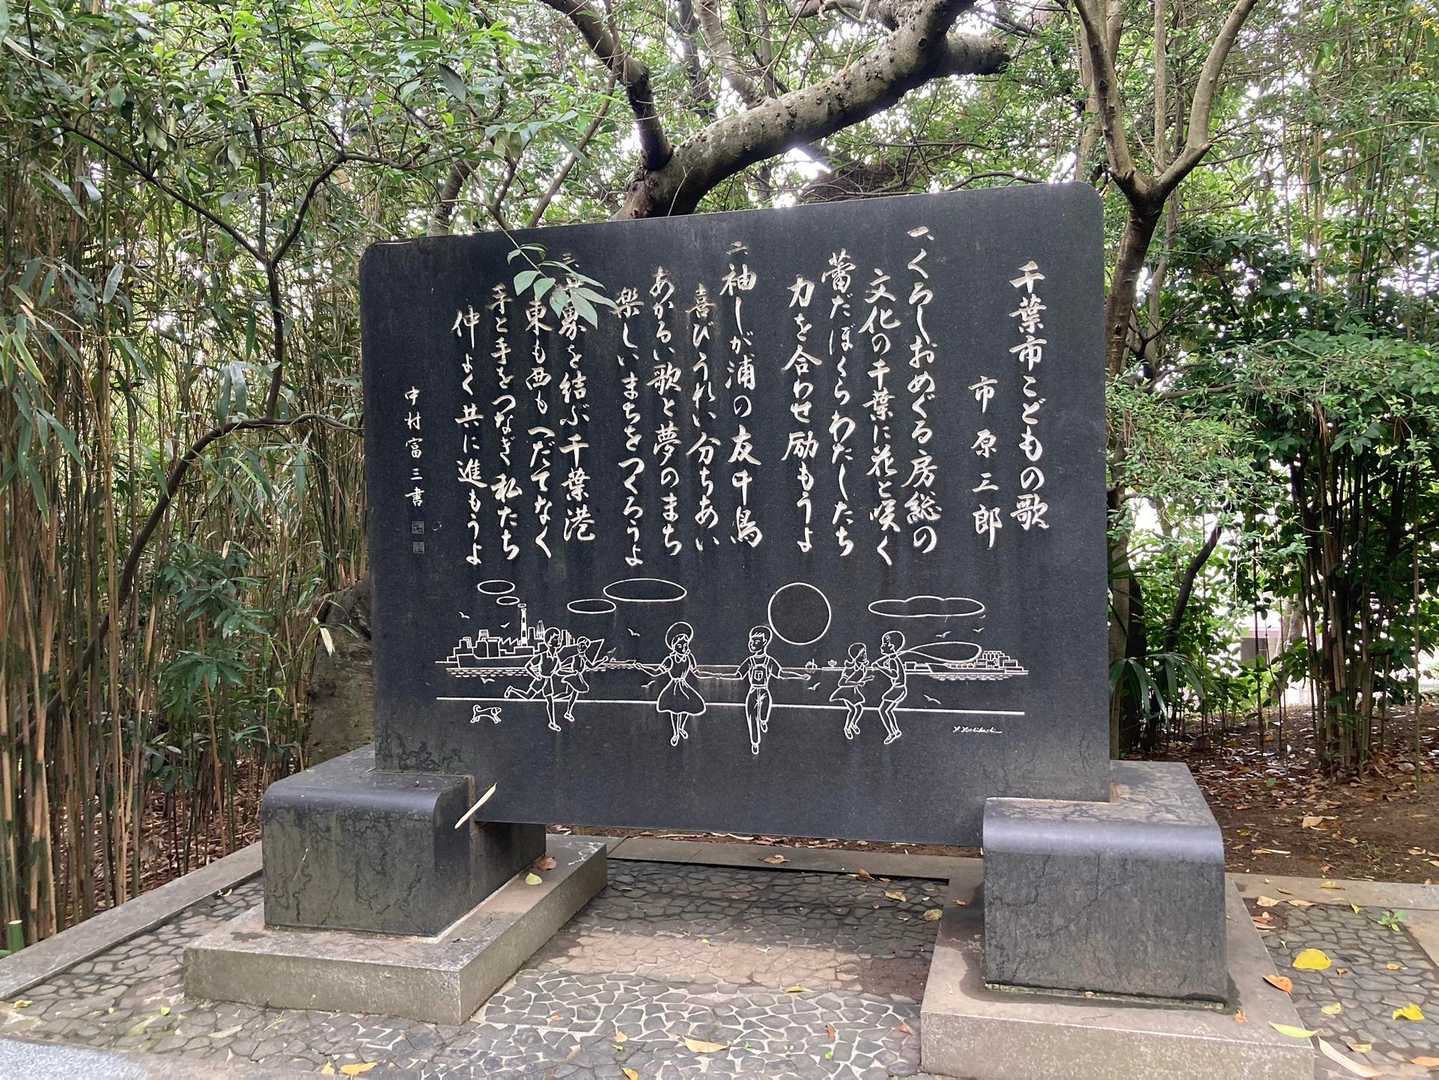 千葉市こどもの歌
市原三郎
一、くろしおめぐる房総の
文化の千葉に花と咲く
蕾だぼくらわたしたち
力を合わせ励もうよ
二、袖しが浦の友千鳥
喜びうれい分ちあい
あかるい歌と夢のまち
楽しいまちをつくろうよ
三、界を結ぶ千葉港
東も西もへだてなく
手と手をつなぎ私たち
仲よく共に進もうよ
中村富三書